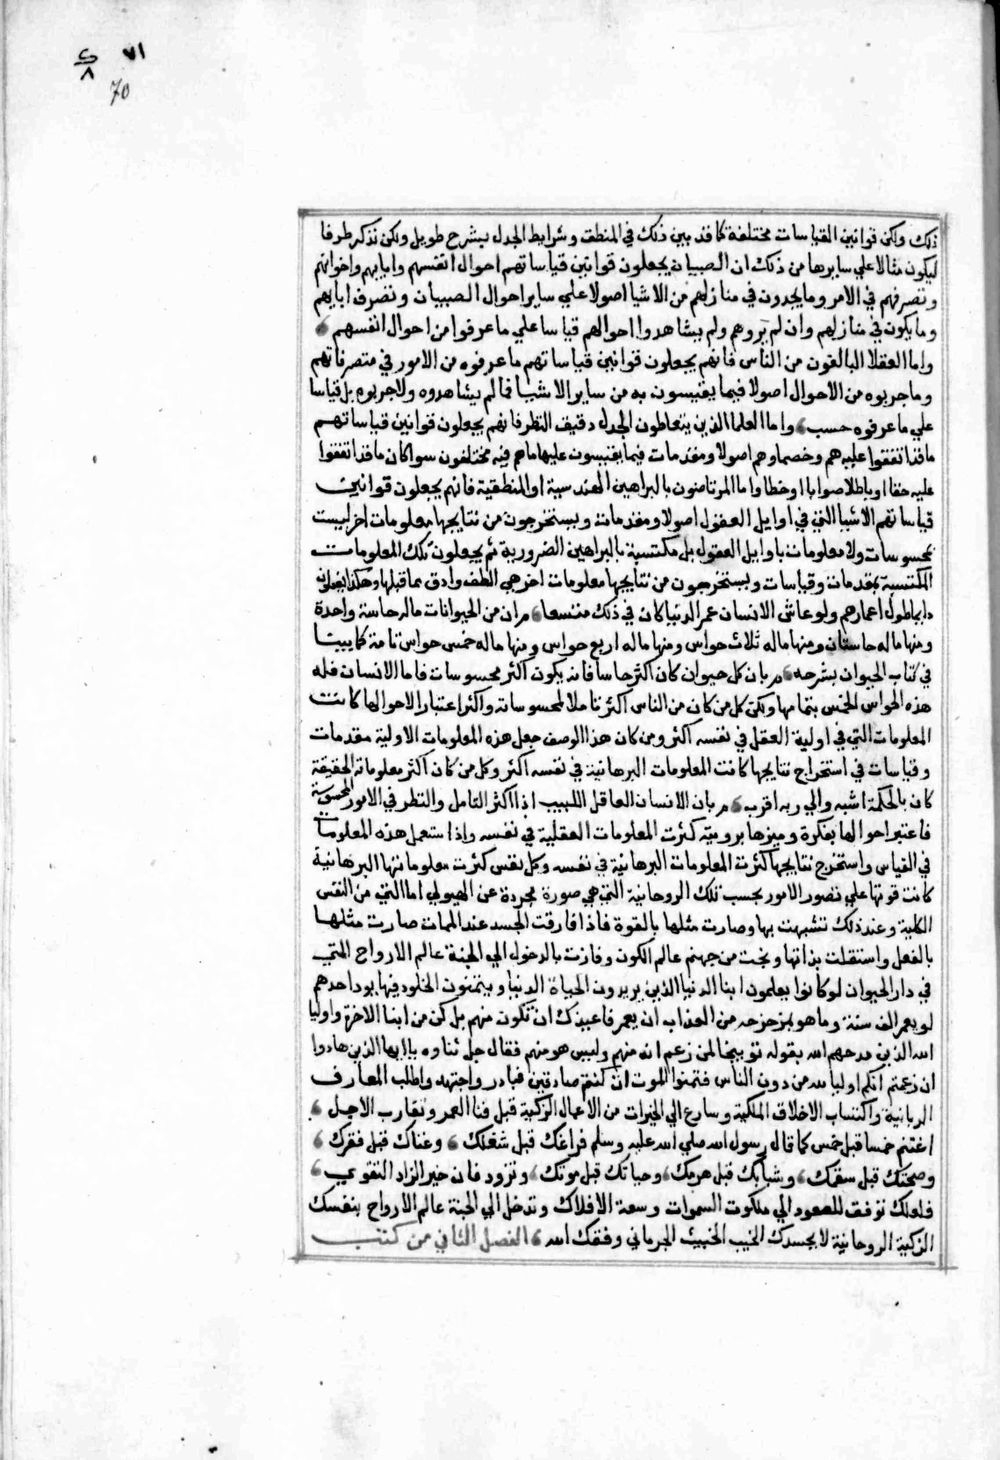 ٧١
٧٥
ذلك ولكن قوانين القياسات مختلفة كما قد بين ذلك في المنطق وشرايط الجدل بشرح طويل ولكن نذكر طرفا
ليكون مثالا علي سايرها من ذلك ان الصبيان يجعلون قوانين قياساتهم احوال انفسهم وابايهم واخوانهم
وتصرفهم في الامر وما يجدون في منازلهم من الاشيا اصولا علي ساير احوال الصبيان وتصرف ابايهم
وما يكون في منازلهم وان لم يروهم ولم يشاهدوا احوالهم قياسا علي ما عرفوا من احوال انفسهم
واما العقلا البالغون من الناس فانهم يجعلون قوانين قياساتهم ما عرفوه من الامور في متصرفاتهم
وما جربوه من الاحوال اصولا فيما يقيسون به من ساير الاشيا فما لم يشاهدوه ولا جربوه بل قياسا
علي ما عرفوه حسب واما العلما الذين يتعاطون الجدل ودقيق النظر فانهم يجعلون قوانين قياساتهم
ما قد اتفقوا عليه هم وخصماوهم اصولا ومقدمات فيما يقيسون عليها ما هم فيه مختلفون سوا كان ما قد اتفقوا
عليه حقا او باطلا صوابا او خطا واما المرتاضون بالبراهين الهندسية او المنطقية فانهم يجعلون قوانين
قياساتهم الاشيا التي في اوايل العقول اصولا ومقدمات ويستخرجون من نتايجها معلومات اخر ليست
بمحسوسات ولا معلومات باوايل العقول بل مكتسبة بالبراهين الضرورية ثم يجعلون تلك المعلومات
المكتسبة مقدمات وقياسات ويستخرجون من نتايجها معلومات اخر هي الطف وادق مما قبلها وهكذا يفعلون
دايما طول اعمارهم ولو عاش الانسان عمر الدنيا كان في ذلك متسعا م ران من الحيوانات ماله حاسة واحدة
ومنها ماله حاستان ومنها ماله ثلاث حواس ومنها ماله اربع حواس ومنها ماله خمس حواس تامة كما بينا
في كتاب الحيوان بشرحه م ربان كل حيوان كان اكثر حاسا فانه يكون اكثر محسوسات فاما الانسان فله
هذه الحواس الخمس بتمامها ولكن كل من كان من الناس اكثر تاملا لمحسوساته واكثر اعتبارا لاحوالها كانت
المعلومات التي في اولية العقل في نفسه اكثر ومن كان هذا الوصف جعل هذه المعلومات الاولية مقدمات
وقياسات في استخراج نتايجها كانت المعلومات البرهانية في نفسه اكثر وكل من كان اكثر معلوماته الحقيقة
كان بالحكمة اشبه والي ربه اقرب م ربان الانسان العاقل اللبيب اذا اكثر التامل والنظر في الامور المحسوسة
فاعتبر احوالها بفكرة وميزها برويته كثرت المعلومات العقلية في نفسه واذا ستعمل هذه المعلومات
في القياس واستخرج نتايجها كثرت المعلومات البرهانية في نفسه وكل نفس كثرت معلوماتها البرهانية
كانت قوتها علي تصور الامور بحسب تلك الروحانية التي هي صورة مجردة عن الهيولي اما التي من النفس
الكلية وعند ذلك تشبهت بها وصارت مثلها بالقوة فاذا فارقت الجسد عند الممات صارت مثلها
بالفعل واستقلت بذاتها ونجت من جهنم عالم الكون وفازت بالدخول الي الجنة عالم الارواح التي
في دار الحيوان لو كانوا يعلمون ابنا الدنيا الذين يريدون الحياة الدنيا ويتمنون الخلود فيها يود احدهم
لو يعمر الف سنة وما هو بمزحزحه من العذاب ان يعمر فاعيذك ان تكون منهم بل كن من ابنا الاخرة واوليا
الله الذين مدحهم الله بقوله توبيخا لمن زعم انه منهم وليس هو منهم فقال جل ثناوه ياايها الذين هادوا
ان زعمتم انكم اوليا لله من دون الناس فتمنوا الموت ان كنتم صادقين فبادر واجتهد واطلب المعارف
الربانية واكتساب الاخلاق الملكية وسارع الي الخيرات من الاعمال الزكية قبل فنا العمر وتقارب الاجل
اغتنم خمسا قبل خمس كما قال رسول الله صلي الله عليه وسلم فراغك قبل شغلك وغناك قبل فقرك
وصحتك قبل سقمك وشبابك قبل هرمك وحياتك قبل موتك وتزود فان خير الزاد التقوي
فلعلك توفق للصعود الي ملكوت السموات وسعة الافلاك وتدخل الي الجنة عالم الارواح بنفسك
الزكية الروحانية لا بجسدك الخبيث الجرماني وفقك الله الفصل الثاني من كتب